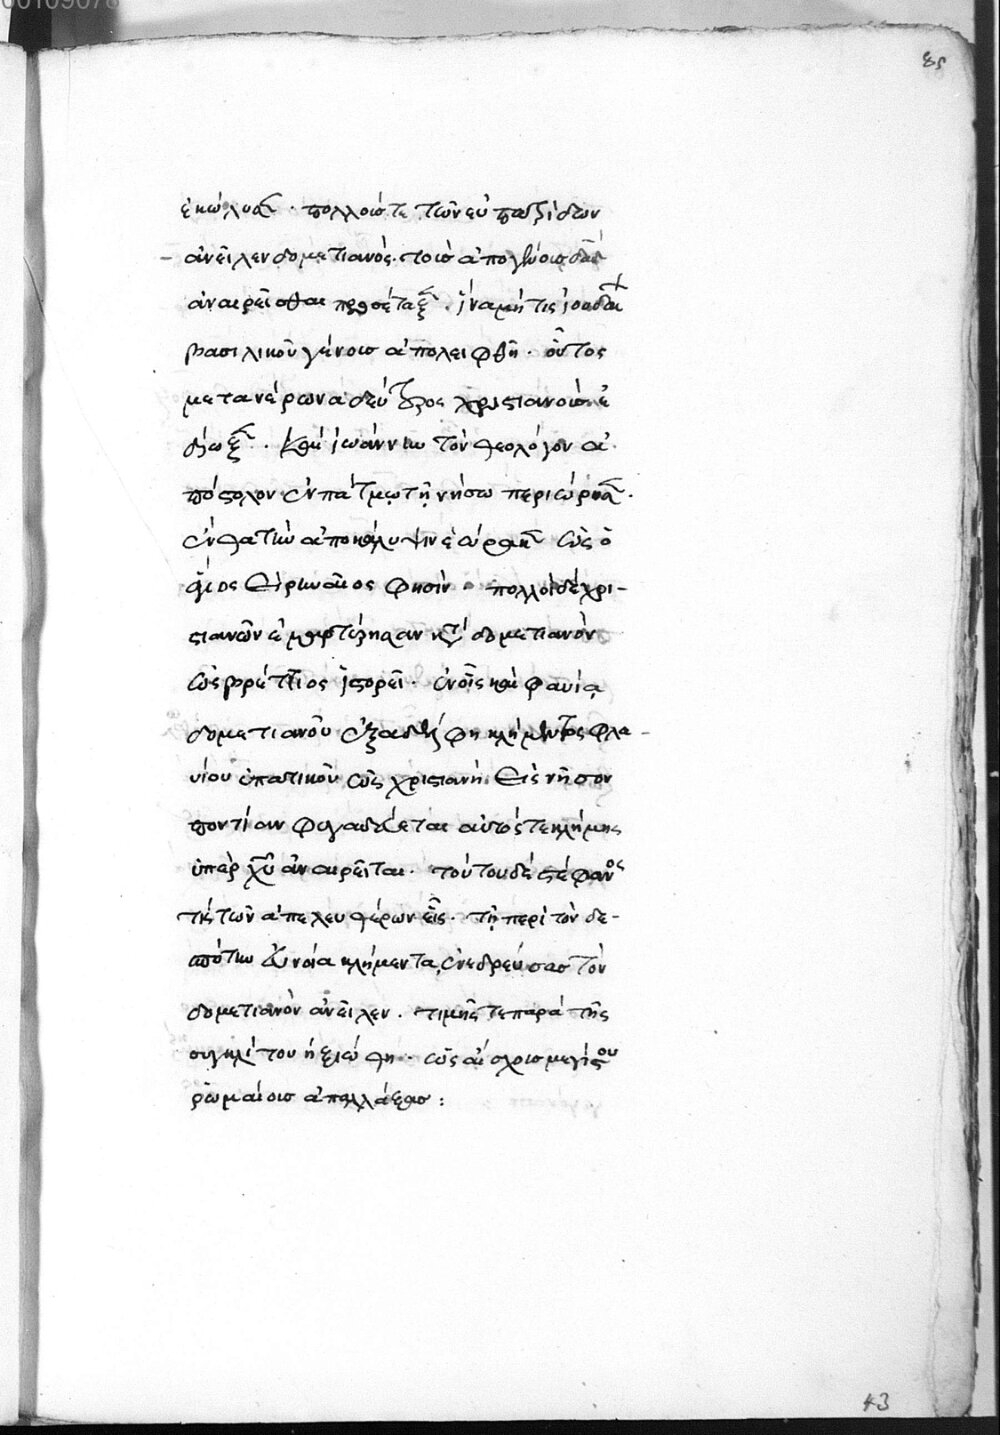 00109078
85
ἐκώλυσε. πολλούς τε τῶν εὐπατριδῶν
ἀνεῖλεν δομετιανός. τοὺς ἀπογόνους δαδ
ἀναιρεῖσθαι προσέταξε. ἵνα μή τις ἰουδαι
βασιλικοῦ γένους ἀπολειφθῆ. οὗτος
μετα νέρωνα δεύτερος χριστιανοὺς ἐ
δίωξε. καὶ ἰωάννην τὸν θεολόγον ἀ
πόστολον ἐν πάτμω τῆ νήσω περιώρισε.
ἔνθα τὴν ἀποκάλυψιν ἑώρακε ὡς ὁ
ἅγιος εἰρηναῖος φησίν. πολλοὶ δὲ χρι-
στιανῶν ἐμαρτύρησαν κατὰ δομετιανὸν
ὡς βρέττιος ἱστορεῖ. ἐν οἷς καὶ φαυία
δομετιανοῦ ἐξαδέλφη κλήμεντος φλα-
υίου ὑπατικοῦ ὡς χριστιανὴ εἰς νῆσον
ποντίαν φυγαδεύεται αὐτός τε κλήμης
ὑπὲρ χῦ ἀναιρεῖται. τούτου δὲ στέφανος
τίς τῶν ἀπελευθέρων εἷς. τῆ περὶ τὸν δε-
σπότην εὐνοία κλήμεντα, ἐνεδρεύσας τὸν
δομετιανὸν ἀνεῖλεν. τιμῆς τε παρὰ τῆς
συγκλήτου ἠξιώθη. ὡς αἴσχους μεγίστου
ρωμαίους ἀπαλλάξας:
43